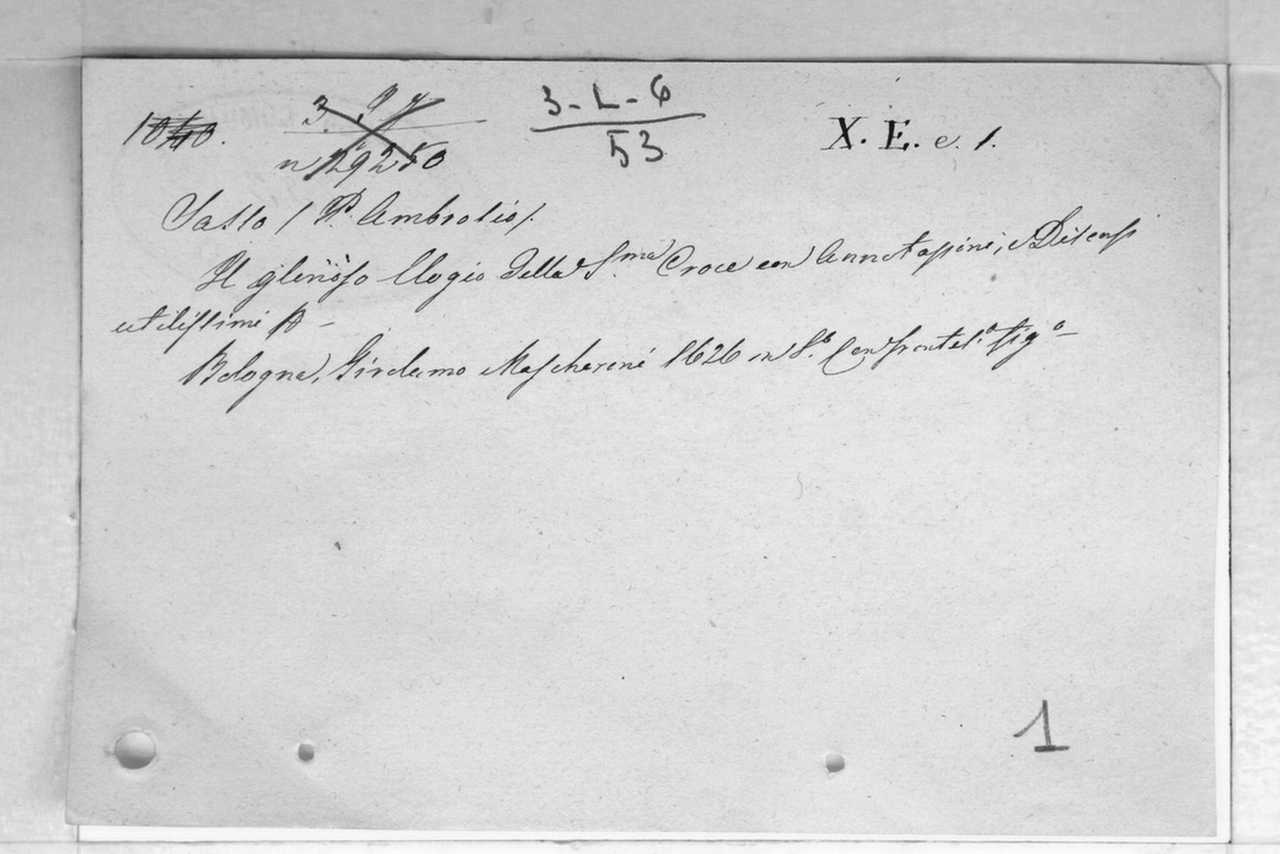 3-L-6
53
X. E. e. 1.
Sasso (P. Ambrosio).
Il glorioso Elogio della S.ma Croce con Annotassini, e Discorsi
utilissimi
Bologna, Girolamo Mascheroni 1626 in 8.o Con frontes.o fig.o
1